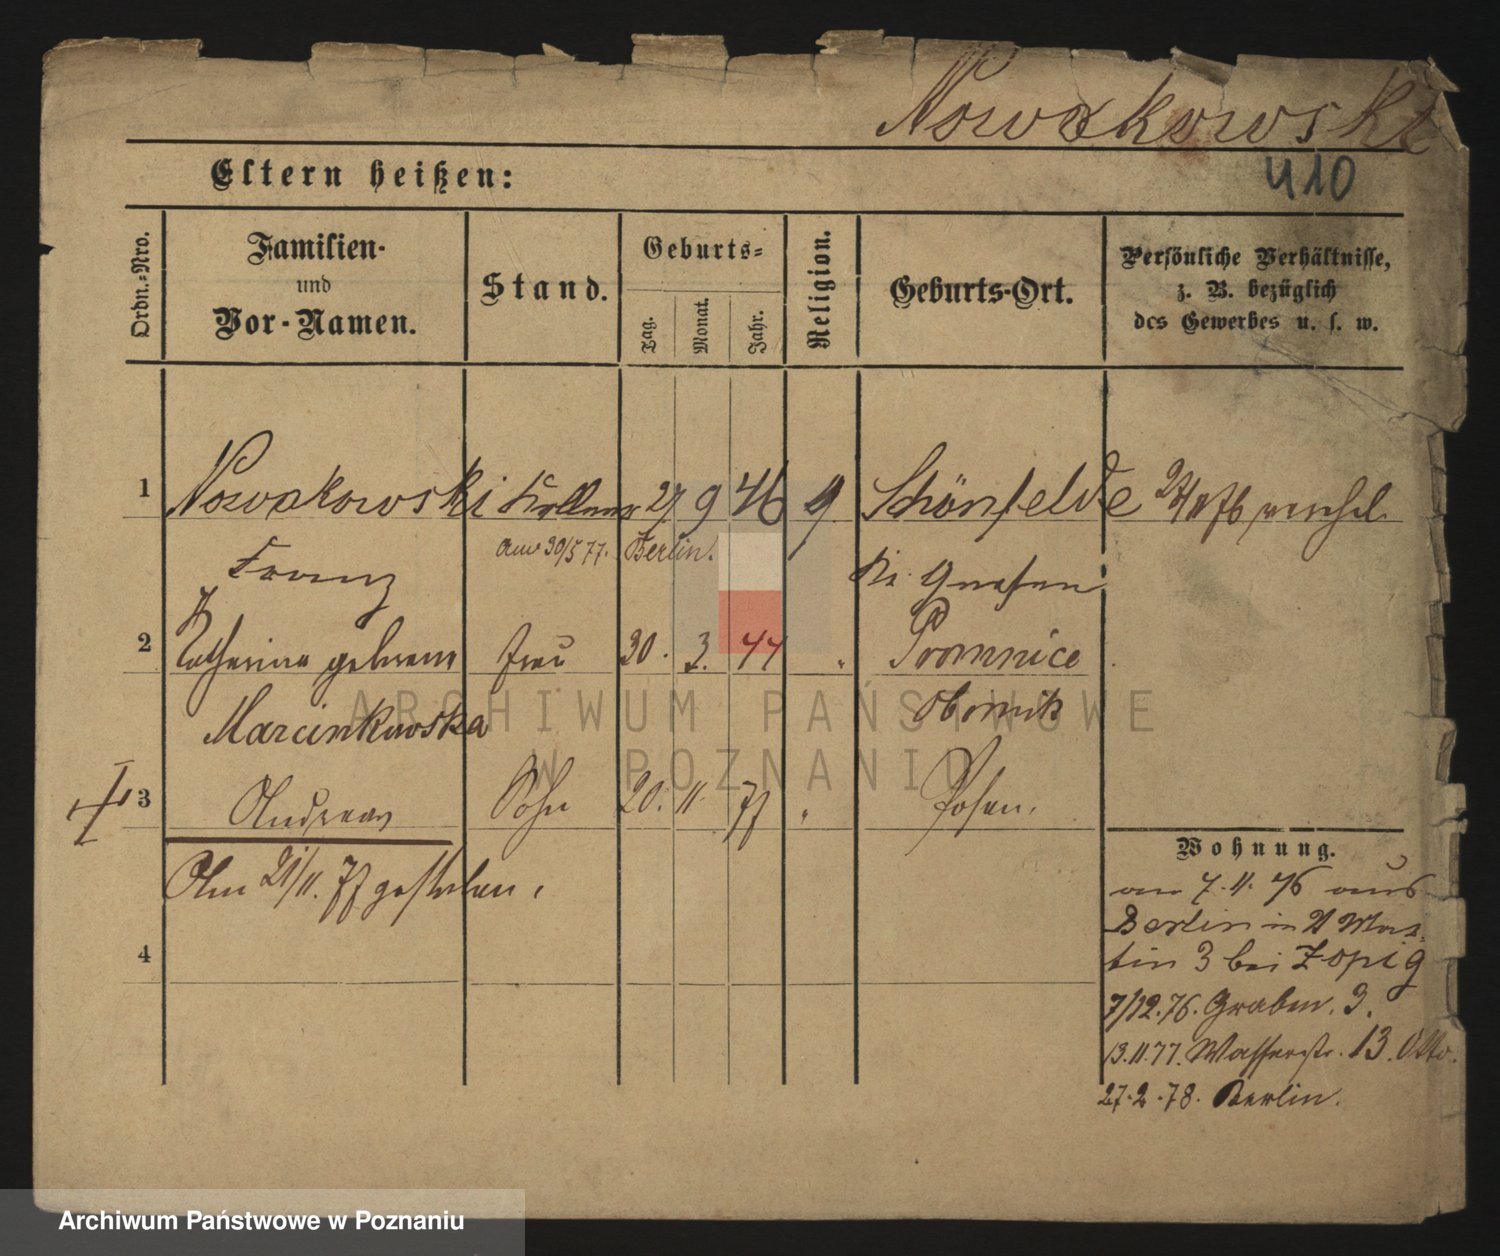 Nowakowski
410
Eltern heißen:
Ordn.-Nro.
Familien-
und
Vor-Namen.
Stand.
Geburts-
Tag.
Monat.
Jahr.
Religion.
Geburts-Ort.
Persönliche Verhältnisse,
z. B. bezüglich
des Gewerbes u. s. w.
1 Nowakowski Kellner 27 9 46 Schönfelde
am 30/5 77. Berlin.
Franz Kr. Gnesen
2 Catharina geborene Frau 30. 3. 44 " Promnice
Marcinkowska Obornik
3 Andreas Sohn 20. 11. 77 " Posen.
Am 21/11. 77 gestorben.
4
Wohnung.
am 7. 11. 76 aus
Berlin in St Mar-
tin 3 bei Zopig
7/12. 76. Graben. 3.
13. 11. 77. Wasserstr. 13. Otto.
27. 2. 78. Berlin.
ARCHIWUM PAŃSTWOWE
W POZNANIU
Archiwum Państwowe w Poznaniu